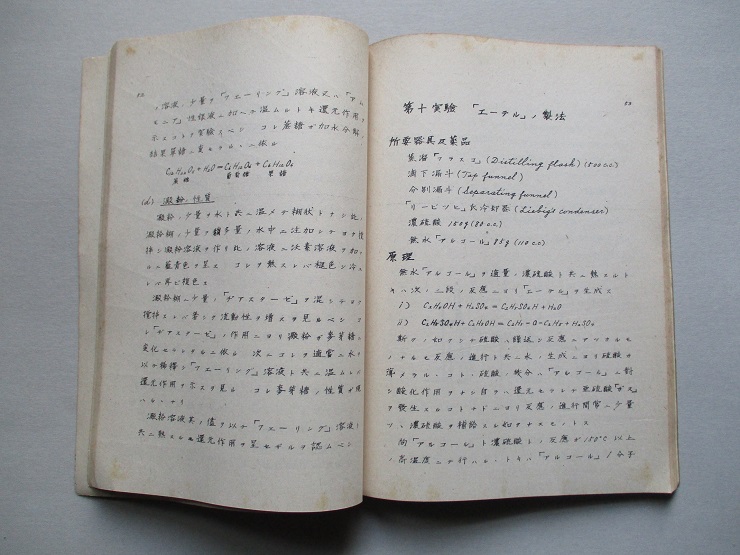 52
溶液ノ少量ヲ「フェーリング」溶液又ハ「アム
モニア」性銀液ニ加ヘテ温ムルトキ還元作用ヲ
示スコトヲ実験スベシ コレ蔗糖ガ加水分解ノ
結果單糖ニ変ゼルニ依ル
C₁₂H₂₂O₁₁+H₂O=C₆H₁₂O₆+C₆H₁₂O₆
蔗糖 葡萄糖 果糖
(d) 澱粉ノ性質
澱粉ノ少量ヲ水ト共ニ温メテ糊状トナシ此ノ
澱粉糊ノ少量ヲ多量ノ水中ニ注加シテヨク攪
拌シ澱粉溶液ヲ作リ此ノ溶液ニ沃素溶液ヲ加フ
ルニ藍青色ヲ呈ス コレヲ熱スレバ褪色シ冷ス
レバ再ビ現色ス
澱粉糊ニ少量ノ「ヂアスターゼ」ヲ混ジテヨク
攪拌スレバ著シク流動性ヲ増スヲ見ルベシ コ
レ「ヂアスターゼ」ノ作用ニヨリ澱粉ガ麦芽糖ニ
変化セラレタルニ依ル 次ニコレヲ適宜ニ水ヲ
以テ稀釋シ「フェーリング」溶液ト共ニ温ムレバ
還元作用ヲ示スヲ見ル コレ麦芽糖ノ性質ガ現
ハレタリ
澱粉溶液其ノ儘ヲ以テ「フェーリング」溶液ト
共ニ熱スルモ還元作用ヲ呈セザルヲ認ムベシ
53
第十実験 「エーテル」ノ製法
所要器具及薬品
蒸溜「フラスコ」(Distilling flask)(500cc)
滴下漏斗(Tap funnel)
分別漏斗(Separating funnel)
「リービッヒ」氏冷却器(Liebig's condenser)
濃硫酸 150g(80cc)
無水「アルコール」85g(110cc)
原理
無水「アルコール」ヲ適量ノ濃硫酸ト共ニ熱スルト
キハ次ノ二段ノ反應ニヨリ「エーテル」ヲ生成ス
i) C₂H₅OH+H₂SO₄=C₂H₅SO₄H+H₂O
ii) C₂H₅SO₄H+C₂H₅OH=C₂H₅-O-C₂H₅+H₂SO₄
斯クノ如クシテ硫酸ハ暗誘反應ニアツカルモ
ノナルモ反應ノ進行ト共ニ水ノ生成ニヨリ硫酸ヲ
薄メラルルコト、硫酸ノ幾分ハ「アルコール」ニ對
シ酸化作用ヲナシ自ラハ還元セラレテ亜硫酸「ガス」
ヲ發生スルコトナドニヨリ反應ノ進行間常ニ少量
ヅツ濃硫酸ヲ補給スル如クナスモノトス
尚「アルコール」ト濃硫酸トノ反應ガ150°C以上
ノ高温度ニテ行ハルルトキハ「アルコール」1分子